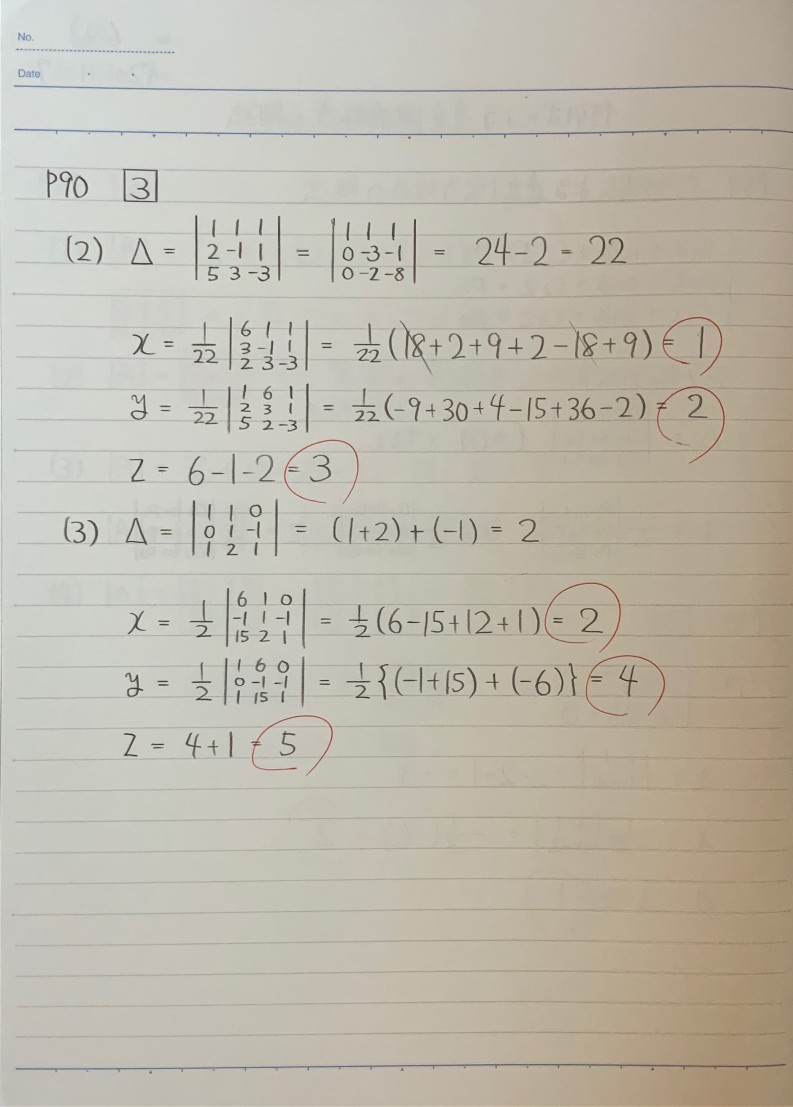 No.
Date
P90 3
(2) Δ = |1 1 1; 2 -1 1; 5 3 -3| = |1 1 1; 0 -3 -1; 0 -2 -8| = 24-2 = 22
x = 1/22 |6 1 1; 3 -1 1; 2 3 -3| = 1/22 (18+2+9+2-18+9) = 1
y = 1/22 |1 6 1; 2 3 1; 5 2 -3| = 1/22 (-9+30+4-15+36-2) = 2
z = 6-1-2 = 3
(3) Δ = |1 1 0; 0 1 -1; 1 2 1| = (1+2)+(-1) = 2
x = 1/2 |6 1 0; -1 1 -1; 15 2 1| = 1/2 (6-15+12+1) = 2
y = 1/2 |1 6 0; 0 -1 -1; 1 15 1| = 1/2 {(-1+15)+(-6)} = 4
z = 4+1 = 5